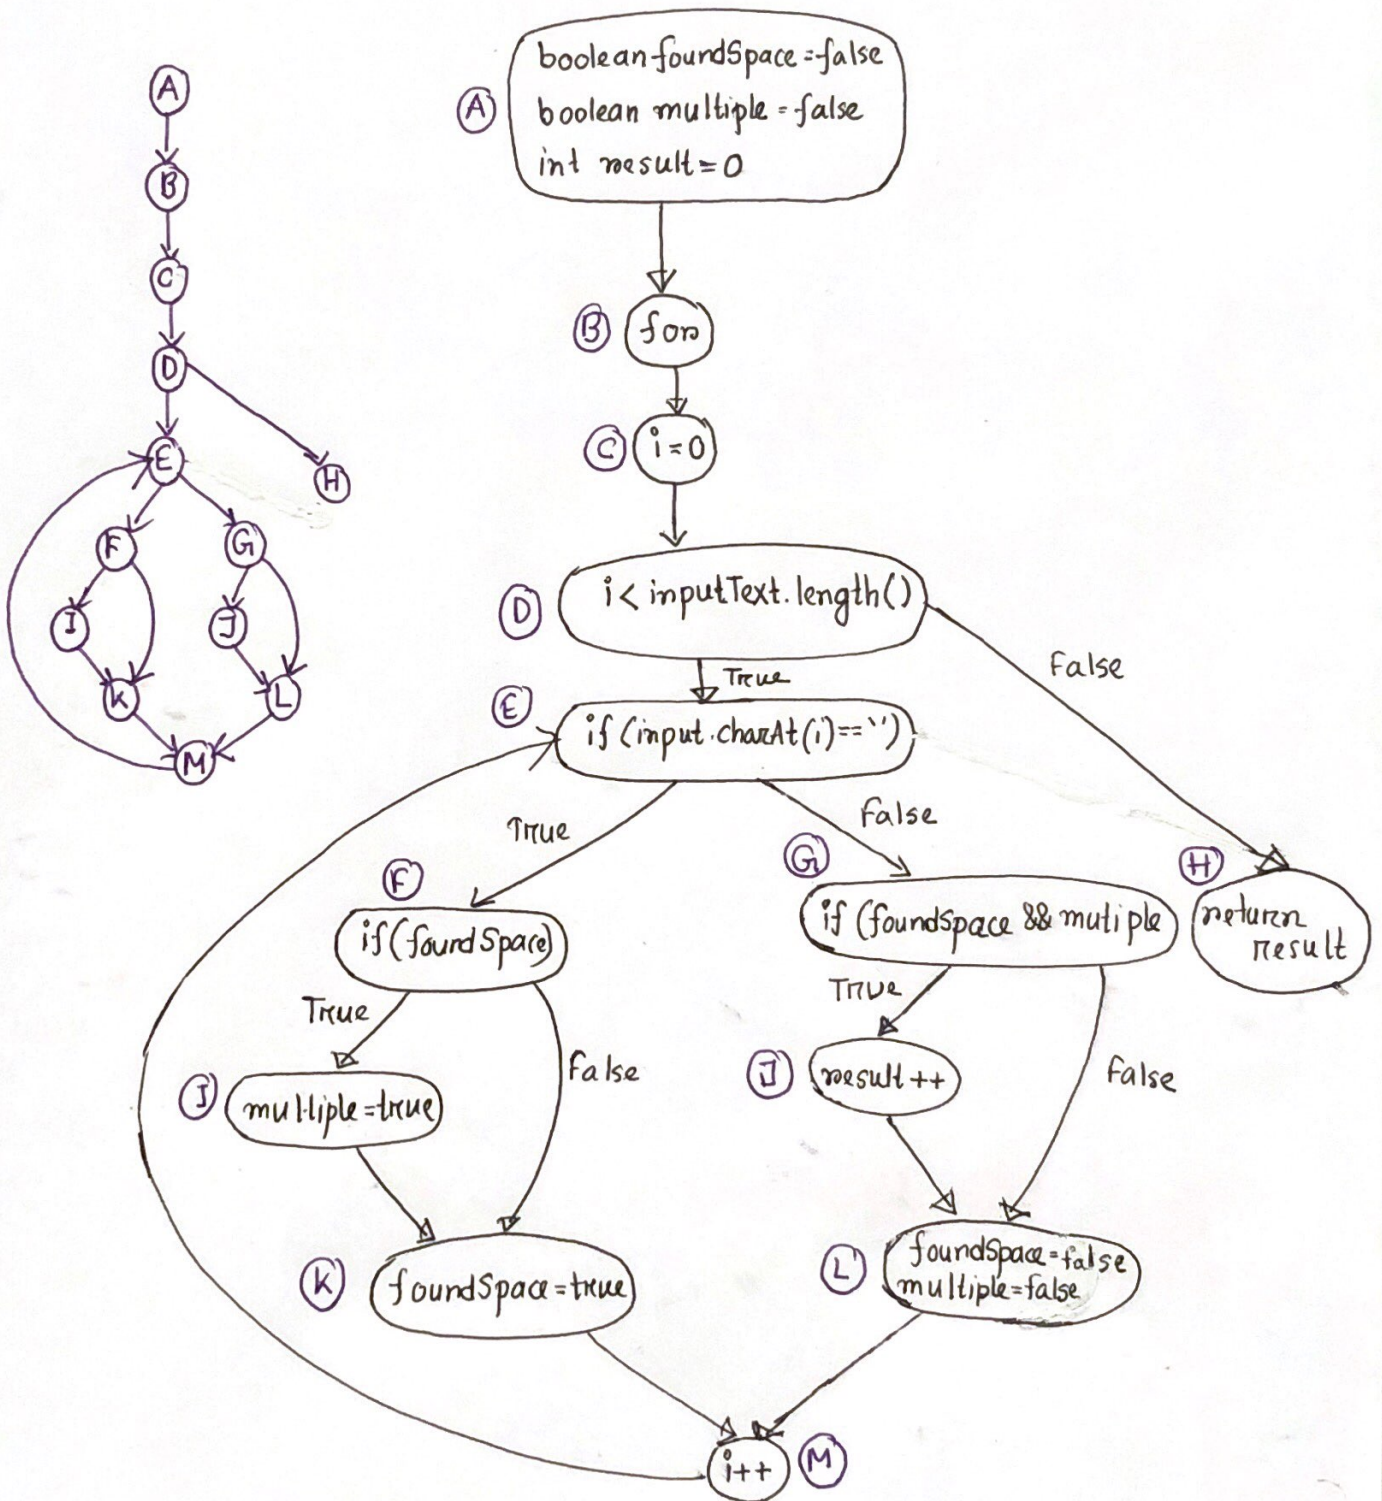 A
B
C
D
E
H
F
G
I
J
K
L
M
A
boolean foundSpace=false
boolean multiple=false
int result=0
B
for
C
i=0
D
i< inputText.length()
True
False
E
if (input.charAt(i)==' ')
True
False
F
if(foundSpace)
G
if (foundSpace && mutiple
H
return
result
True
False
True
False
I
multiple=true
J
result++
K
foundSpace=true
L
foundSpace=false
multiple=false
i++
M